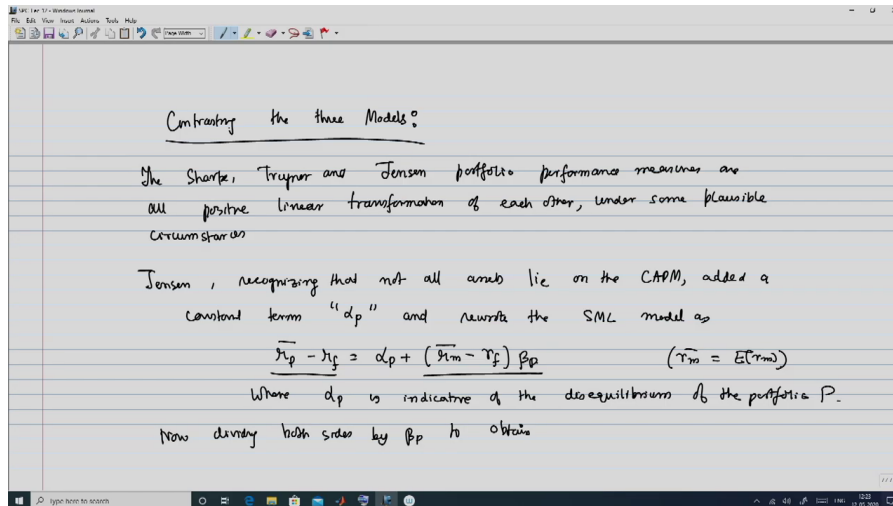 SPC Lec 12 - Windows Journal
File Edit View Insert Actions Tools Help
Page Width
Contrasting the three Models:
The Sharpe, Treynor and Jensen portfolio performance measures are
all positive linear transformation of each other, under some plausible
circumstances
Jensen, recognizing that not all assets lie on the CAPM, added a
constant term "αp" and rewrote the SML model as
r̄p - rf = αp + (r̄m - rf) βp (r̄m = E(rm))
Where αp is indicative of the disequilibrium of the portfolio P.
Now dividing both sides by βp to obtain
Type here to search
ENG
12:23
12-05-2020